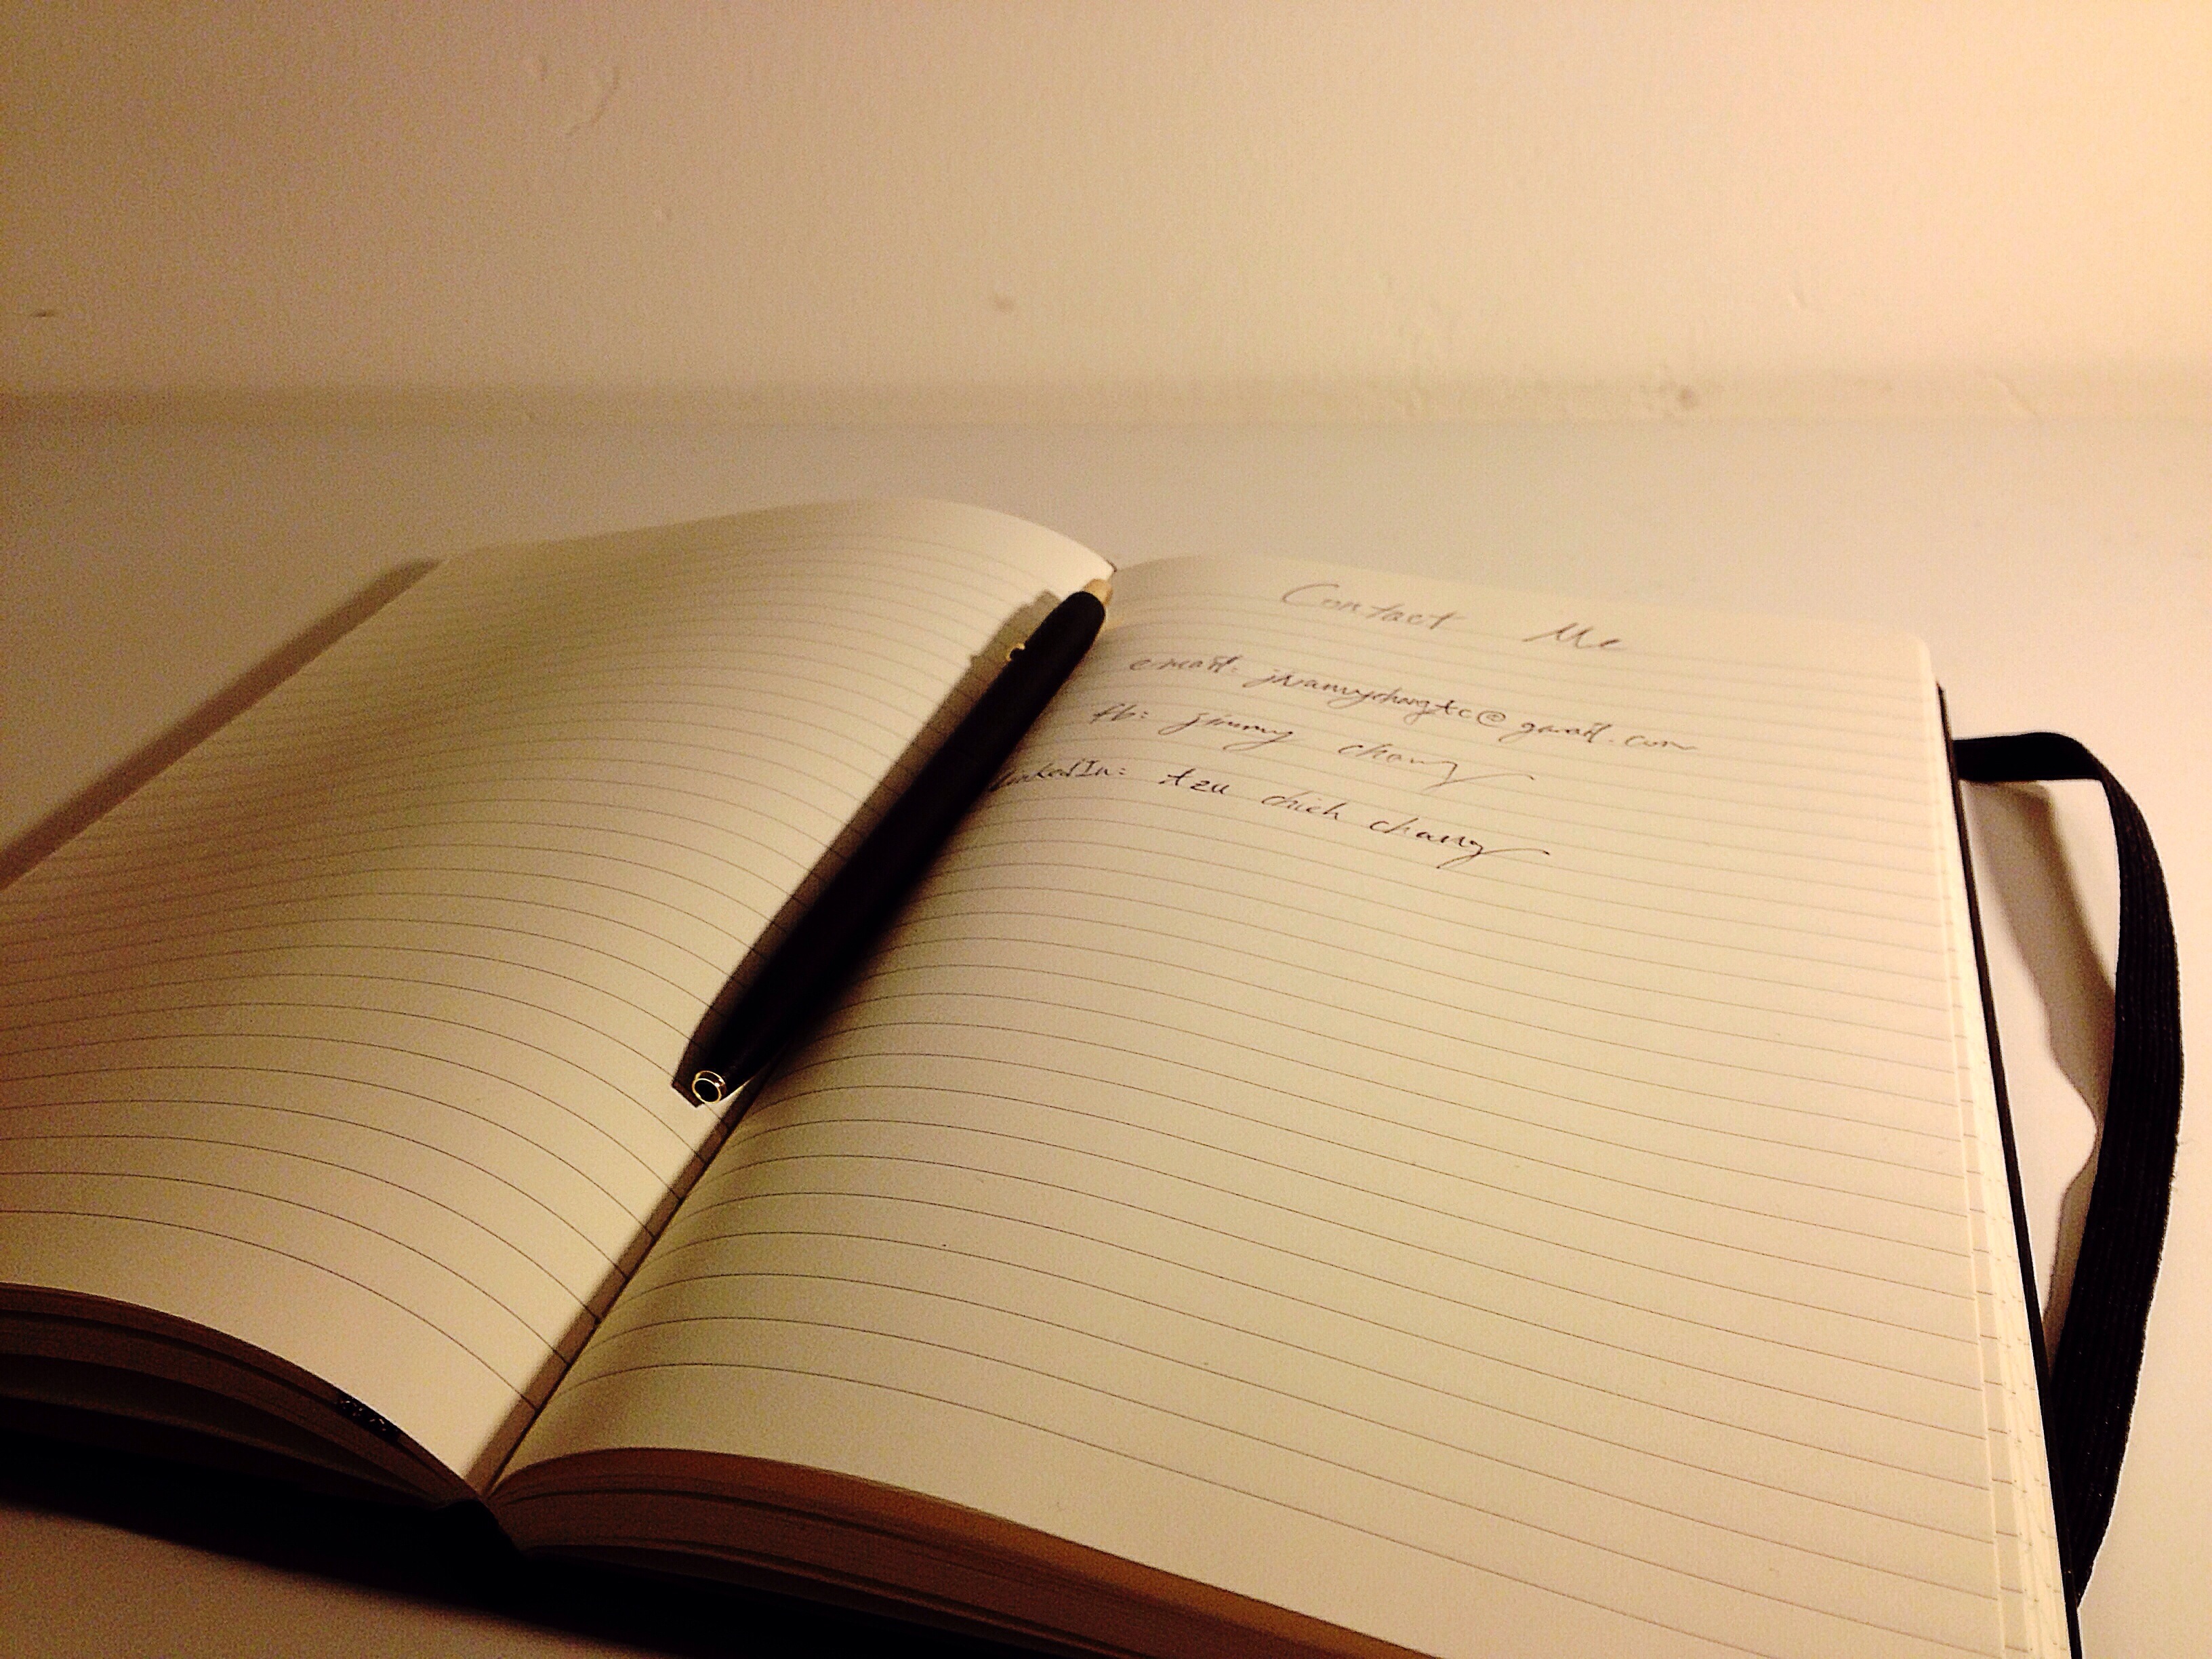 Contact Me
email: jimmychangtc@gmail.com
fb: jimmy chang
LinkedIn: tzu chieh chang